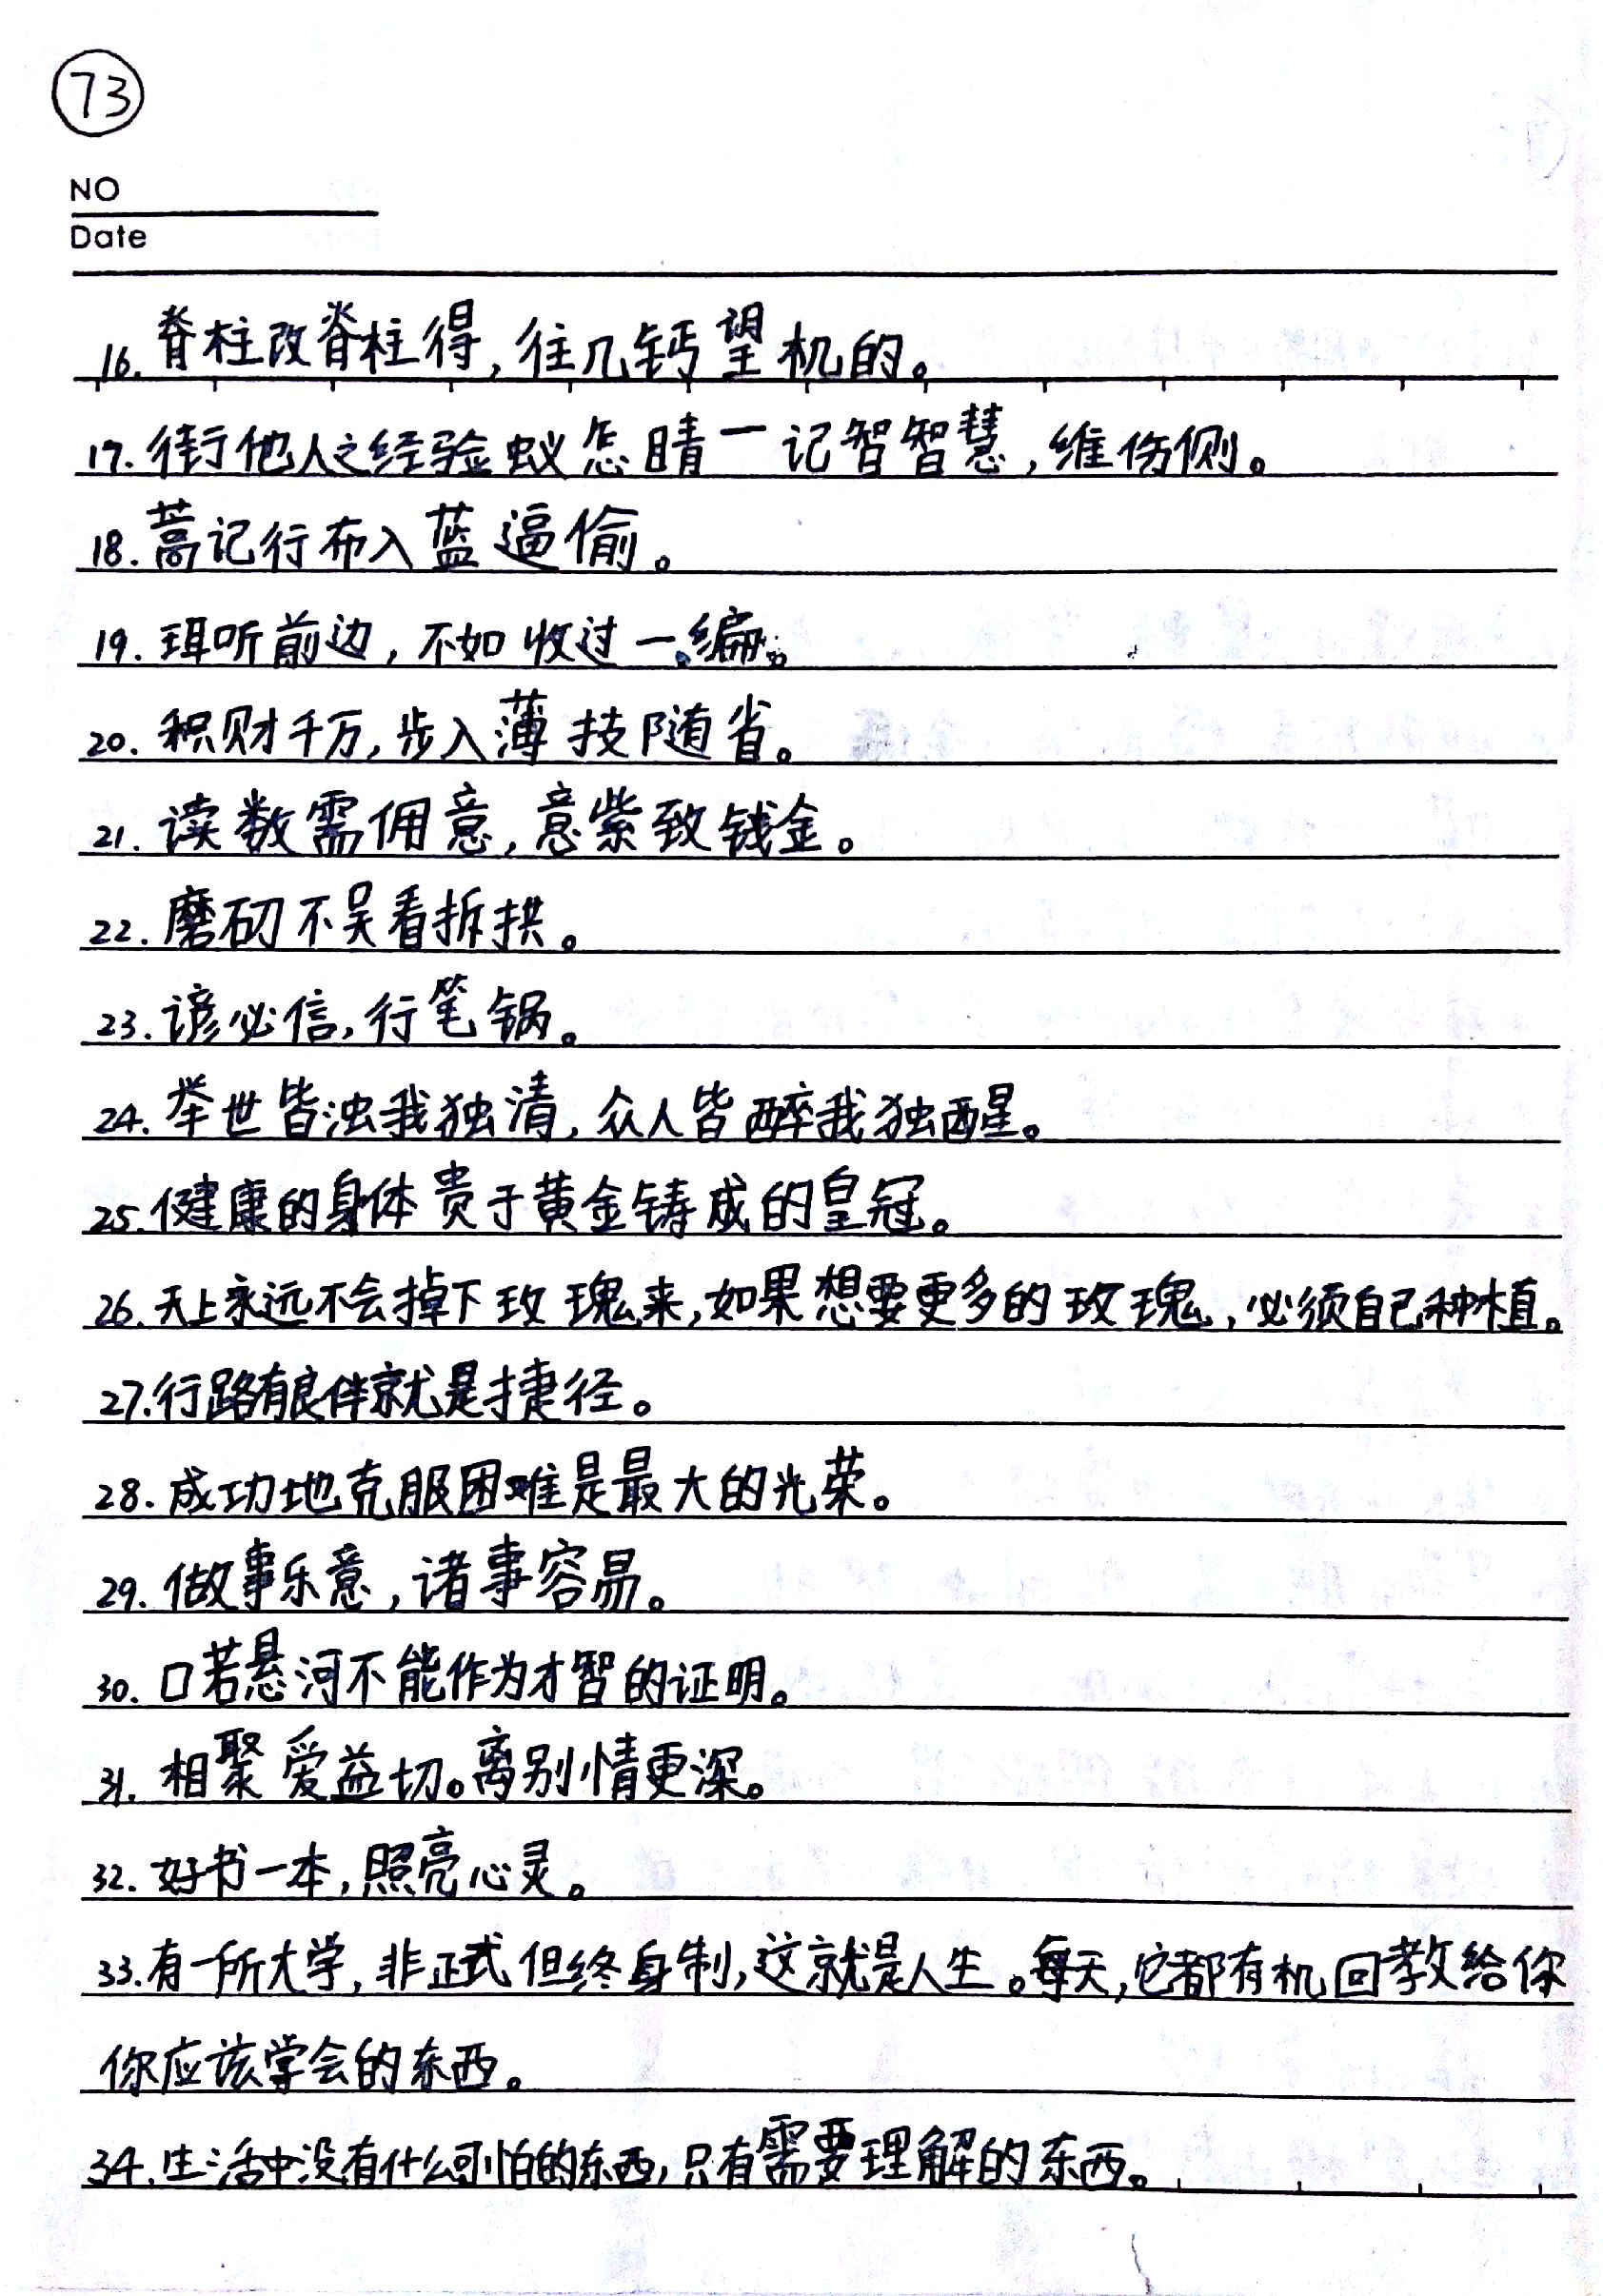 73
NO
Date
16. 脊柱改脊柱得,往几钙望机的。
17. 街他人之经验蚁怎睛一记智智慧,维伤侧。
18. 蒿记行布入蓝逼偷。
19. 珥听前边,不如收过一编。
20. 积财千万,步入薄技随省。
21. 读数需佣意,意紫致钱金。
22. 磨砌不吴看拆拱。
23. 谚必信,行笔锅。
24. 举世皆浊我独清,众人皆醉我独醒。
25. 健康的身体贵于黄金铸成的皇冠。
26. 天上永远不会掉下玫瑰来,如果想要更多的玫瑰,必须自己种植。
27. 行路有良伴就是捷径。
28. 成功地克服困难是最大的光荣。
29. 做事乐意,诸事容易。
30. 口若悬河不能作为才智的证明。
31. 相聚爱益切。离别情更深。
32. 好书一本,照亮心灵。
33. 有一所大学,非正式但终身制,这就是人生。每天,它都有机回教给你
你应该学会的东西。
34. 生活中没有什么可怕的东西,只有需要理解的东西。